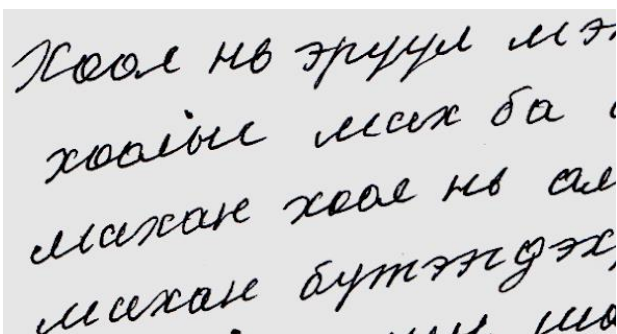 Хоол нь эрүүл мэ
хоолын мах ба
махан хоол нь ал
махан бүтэгдэх